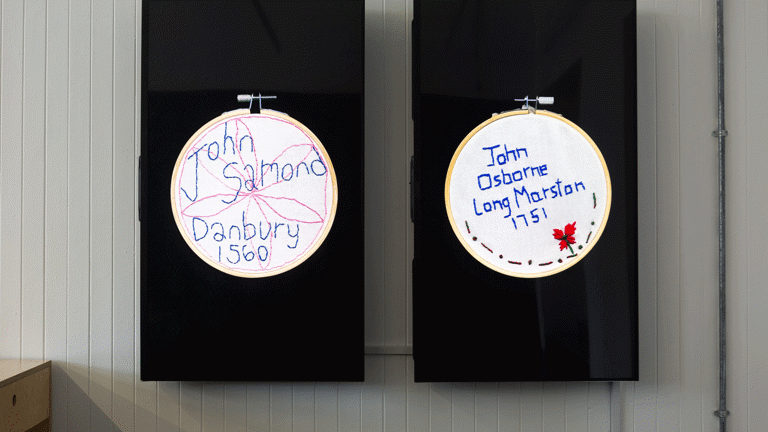 John
Samond
Danbury
1560
John
Osborne
Long Marston
1751